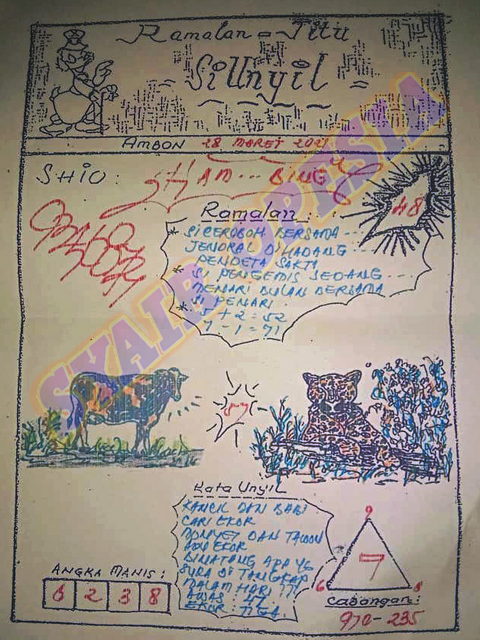 Ramalan = Titu
Si Unyil
AMBON 28 MARET 2021
SHIO:
AYAM... BING
48
Ramalan:
* SI CEROBOH BERSAMA ---
JENDRAL DI LADANG
PENDETA SAKTI
* SI PENGEMIS SEDANG ---
MENARI BULAN BERSAMA
* SI PENARI ---
5 + 2 = 52
7 - 1 = 71
57
Kata Unyil
KANCIL DAN BABI
CARI EKOR
MONYET DAN
EKOR
BINATANG APA YG
DI TANGKAP
MALAM HARI ???
AWAS
EKOR TIGA
ANGKA MANIS:
6 2 3 8
9
7
6 8
Cabangan:
970 - 235
SYAIR OPESIA